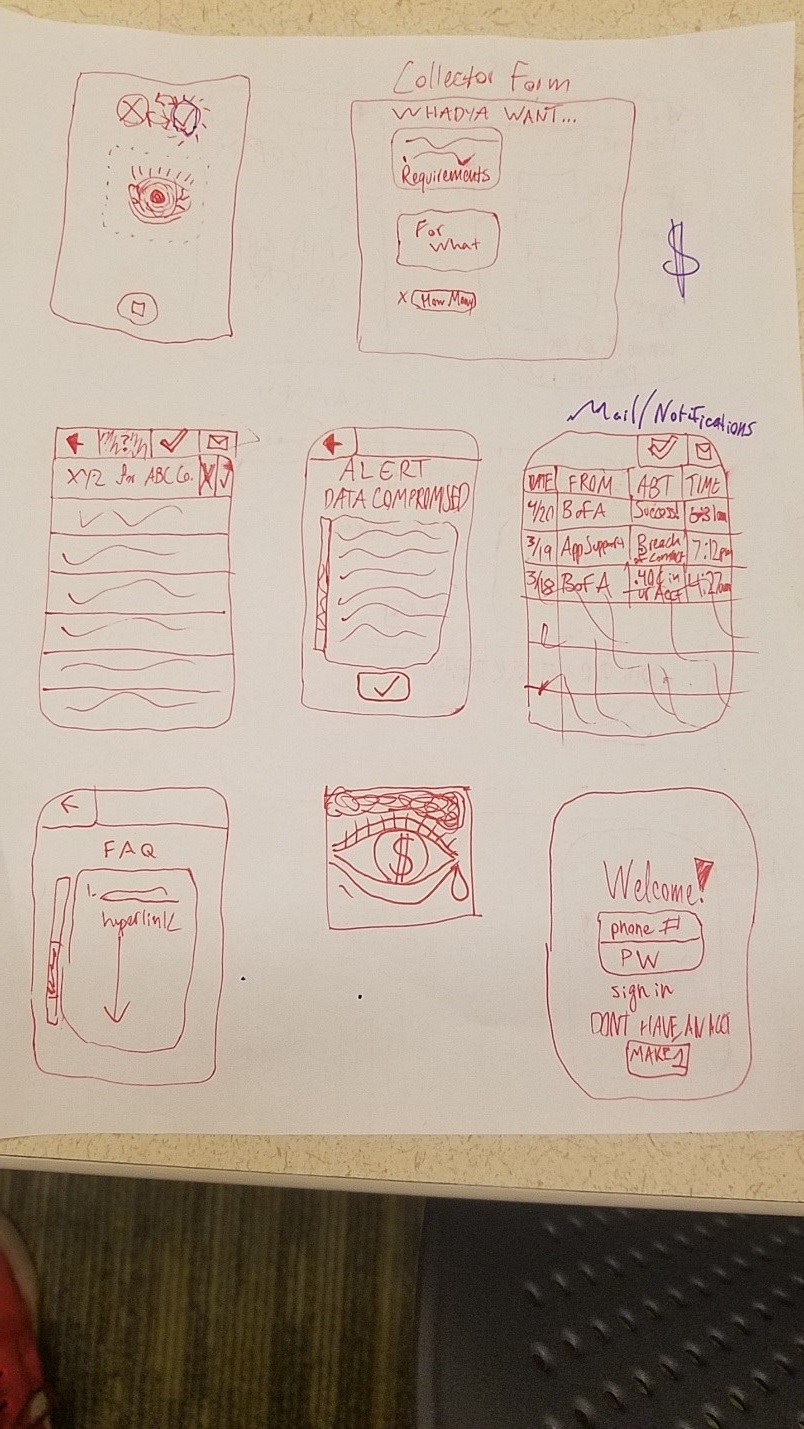 Collector Form
WHADYA WANT...
Requirements
For
What
X How Many
$
Mail/Notifications
XYZ for ABC Co. X
ALERT
DATA COMPROMISED
DATE FROM ABT TIME
4/20 BofA Success!
3/19 App Support Breach of Contract 7:12pm
3/18 BofA .40¢ in ur Acct 4:27am
FAQ
1.
hyperlink
$
Welcome!
phone #
PW
sign in
DONT HAVE AN ACCT
MAKE 1